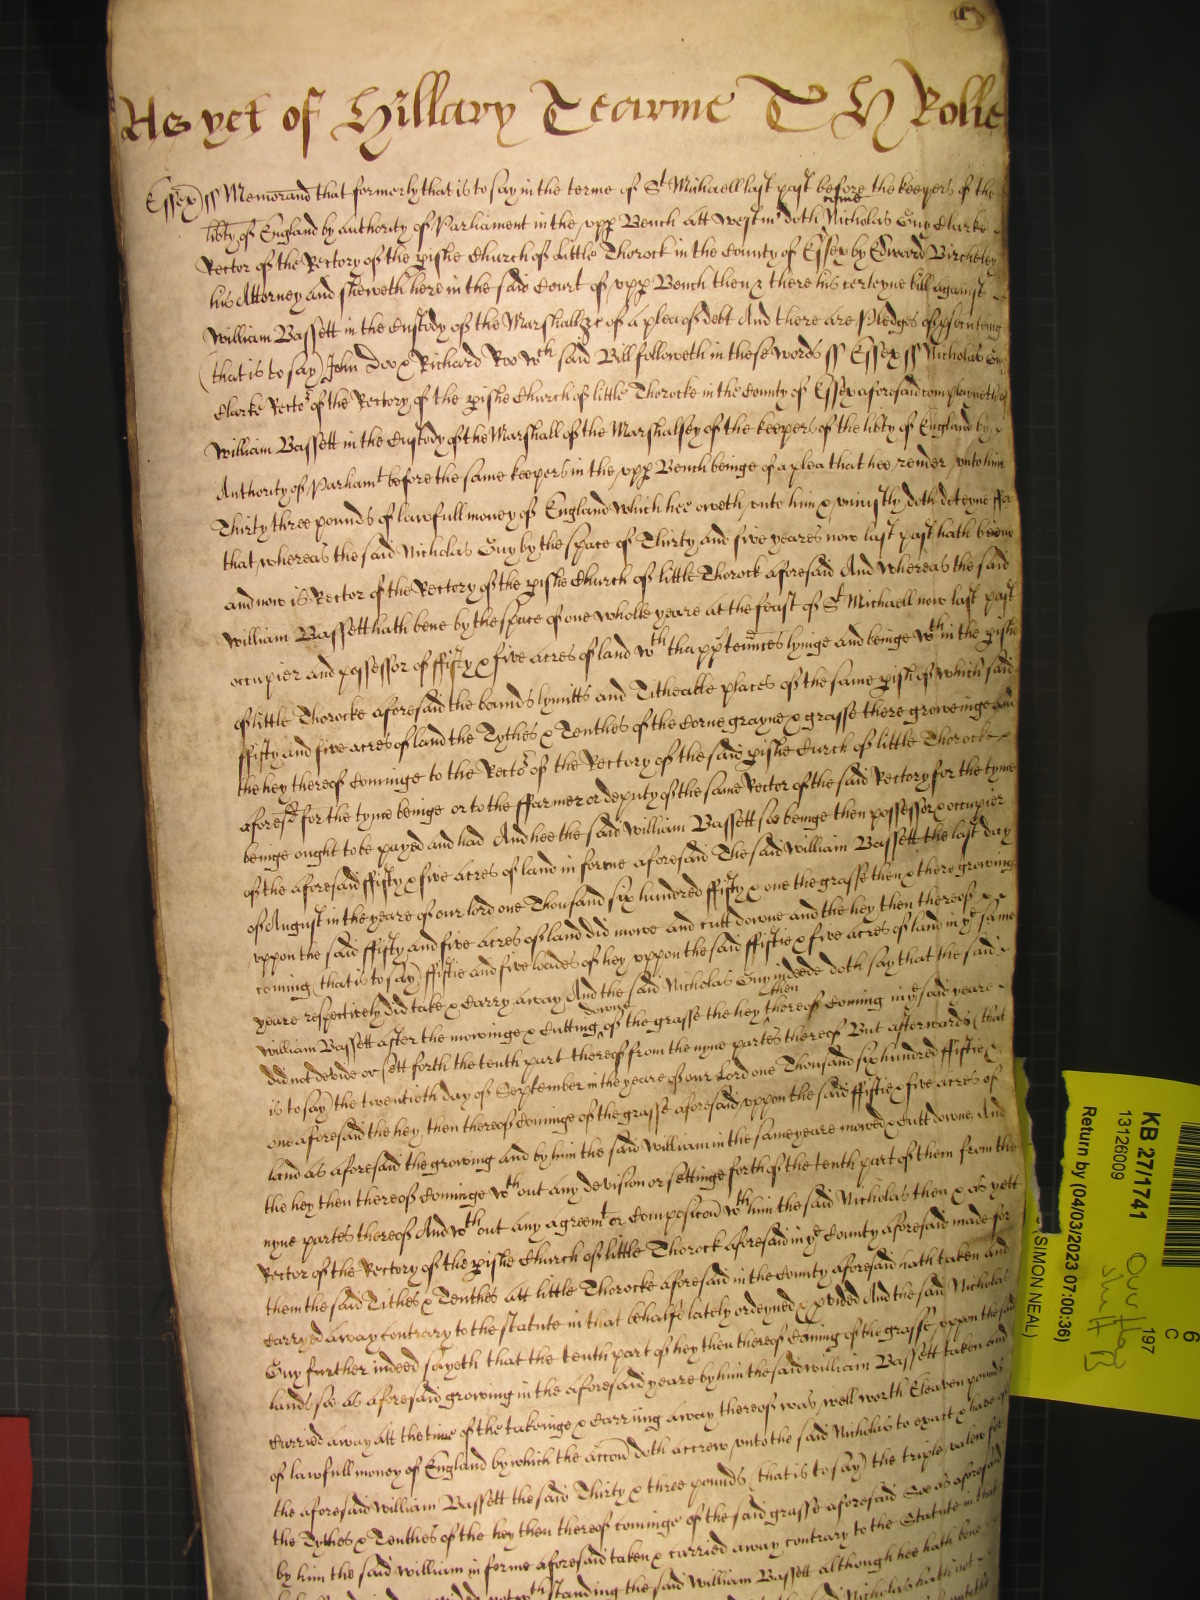 As yet of Hillary Tearme T H Rolle
Essex) ss Memorand that formerly that is to say in the terme of St Michaell last past before the keepers of the
libty of England by authority of Parliament in the upp Bench att Westmr doth come Nicholas Guy Clarke
Rector of the Rectory of the pishe Church of Little Thorock in the County of Essex by Edward Bircheley
his Attorney and sheweth here in the said Court of upp Bench then & there his certeyne bill against
William Bassett in the Custody of the Marshall &c of a plea of debt And there are Pledges of psenteing
(that is to say) John Doo & Richard Roo wch said Bill followeth in these words ss Essex ss Nicholas Guy
Clarke Rector of the Rectory of the pishe Church of little Thorocke in the County of Essex aforesaid complayneth of
William Bassett in the Custody of the Marshall of the Marshalsey of the keepers of the libty of England by
Authority of Parliamt before the same keepers in the upp Bench beinge of a plea that hee render unto him
Thirty three pounds of lawfull money of England which hee oweth unto him & uniustly doth deteyne ffor
that whereas the said Nicholas Guy by the space of Thirty and five yeares now last past hath beene
and now is Rector of the Rectory of the pishe Church of little Thorock aforesaid And whereas the said
William Bassett hath bene by the space of one wholle yeare at the feast of St Michaell now last past
occupier and possessor of ffifty & five acres of land wth thapptennces lyinge and beinge wthin the pishe
of little Thorocke aforesaid the bounds lymitts and Titheable places of the same pish of which said
ffifty and five acres of land the Tythes & Tenthes of the Corne grayne & grasse there groweinge and
the hey thereof Cominge to the Rector of the Rectory of the said pishe Curch of little Thorocke
aforesd for the tyme beinge or to the ffarmer or deputy of the same Rector of the said Rectory for the tyme
beinge ought to be payed and had And hee the said William Bassett soe beinge then possessor & occupier
of the aforesaid ffifty & five acres of land in forme aforesaid The said William Bassett the last day
of August in the yeare of our lord one Thousand six hundred ffifty & one the grasse then & there growing
uppon the said ffifty and five acres of land did mowe and cutt downe and the hey then thereof
coming (that is to say) ffiftie and five loades of hey uppon the said ffiftie & five acres of land in ye same
yeare respectively did take & carry away And the said Nicholas Guy indeede doth say that the said
William Bassett after the mowinge & Cutting downe of the grasse the hey then thereof Coming in ye said yeare
did not devide or sett forth the tenth part thereof from the nyne partes thereof But afterwards (that
is to say) the twentieth day of September in the yeare of our Lord one Thousand six hundred ffiftie &
one aforesaid the hey then thereof Cominge of the grasse aforesaid uppon the said ffiftie & five acres of
land as aforesaid the growing and by him the said William in the same yeare mowed & cutt downe And
the hey then thereof Cominge wthout any devision or settinge forth of the tenth part of them from the
nyne partes thereof And wthout any agreemt or Composicon wth him the said Nicholas then & as yett
Rector of the Rectory of the pishe Church of little Thorock aforesaid in ye County aforesaid made for
them the said Tithes & Tenthes att little Thorocke aforesaid in the County aforesaid hath taken and
Carryed away contrary to the statute in that behalfe lately ordeyned & pvided And the said Nicholas
Guy further indeed sayeth that the tenth part of hey then thereof Coming of the grasse uppon the said
lands soe as aforesaid growing in the aforesaid yeare by him the said William Bassett taken and
Carried away att the time of the takeinge & Carriing away thereof was well worth Eleaven pounds
of lawfull money of England by which the accon doth accrew unto the said Nicholas to exact & have of
the aforesaid William Bassett the said Thirty & three pounds (that is to say) the triple valew for
the Tythes & Tenthes of the hey then thereof cominge of the said grasse aforesaid Soe as aforesaid
by him the said William in forme aforesaid taken & carried away contrary to the Statute in that
standing the said William Bassett although hee hath bene
Nicholas hath not
KB 27/1741
13126009
Return by (04/03/2023 07:00:36)
(SIMON NEAL)
197
C
6